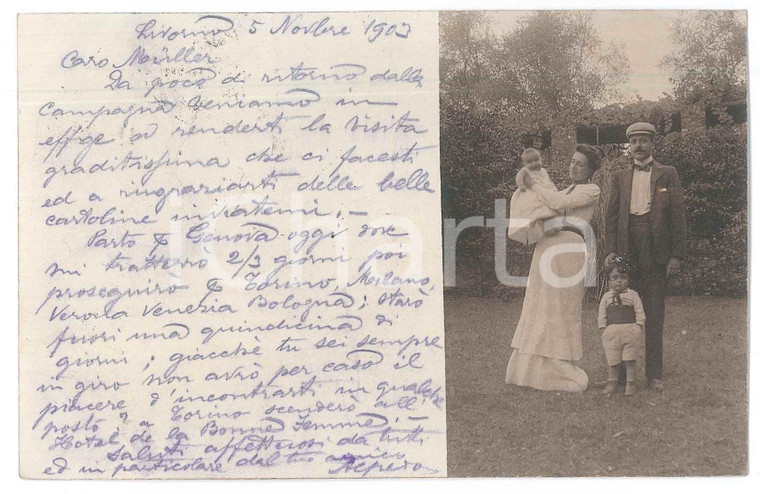 Livorno 5 Novbre 1903
Caro Müller
Da poco di ritorno dalla
campagna veniamo in
effige a renderti la visita
graditissima che ci facesti
ed a ringraziarti delle belle
cartoline inviatemi. -
Parto p Genova oggi dove
mi tratterrò 2/3 giorni poi
proseguirò p Torino, Milano,
Verona Venezia Bologna; starò
fuori una quindicina di
giorni; giacchè tu sei sempre
in giro non avrò per caso il
piacere d'incontrarti in qualche
posto? a Torino scenderò all'
Hotel de la Bonne Femme. -
Saluti affettuosi da tutti
ed in particolare dal tuo amico
Alfredo
delcharta